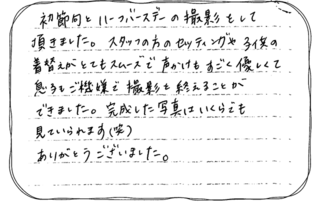 初節句とハーフバースデーの撮影をして
頂きました。スタッフの方のセッティングや子供の
着替えがとてもスムーズで声かけもすごく優しくて
息子もご機嫌で撮影を終えることが
できました。完成した写真はいくらでも
見ていられます(笑)
ありがとうございました。